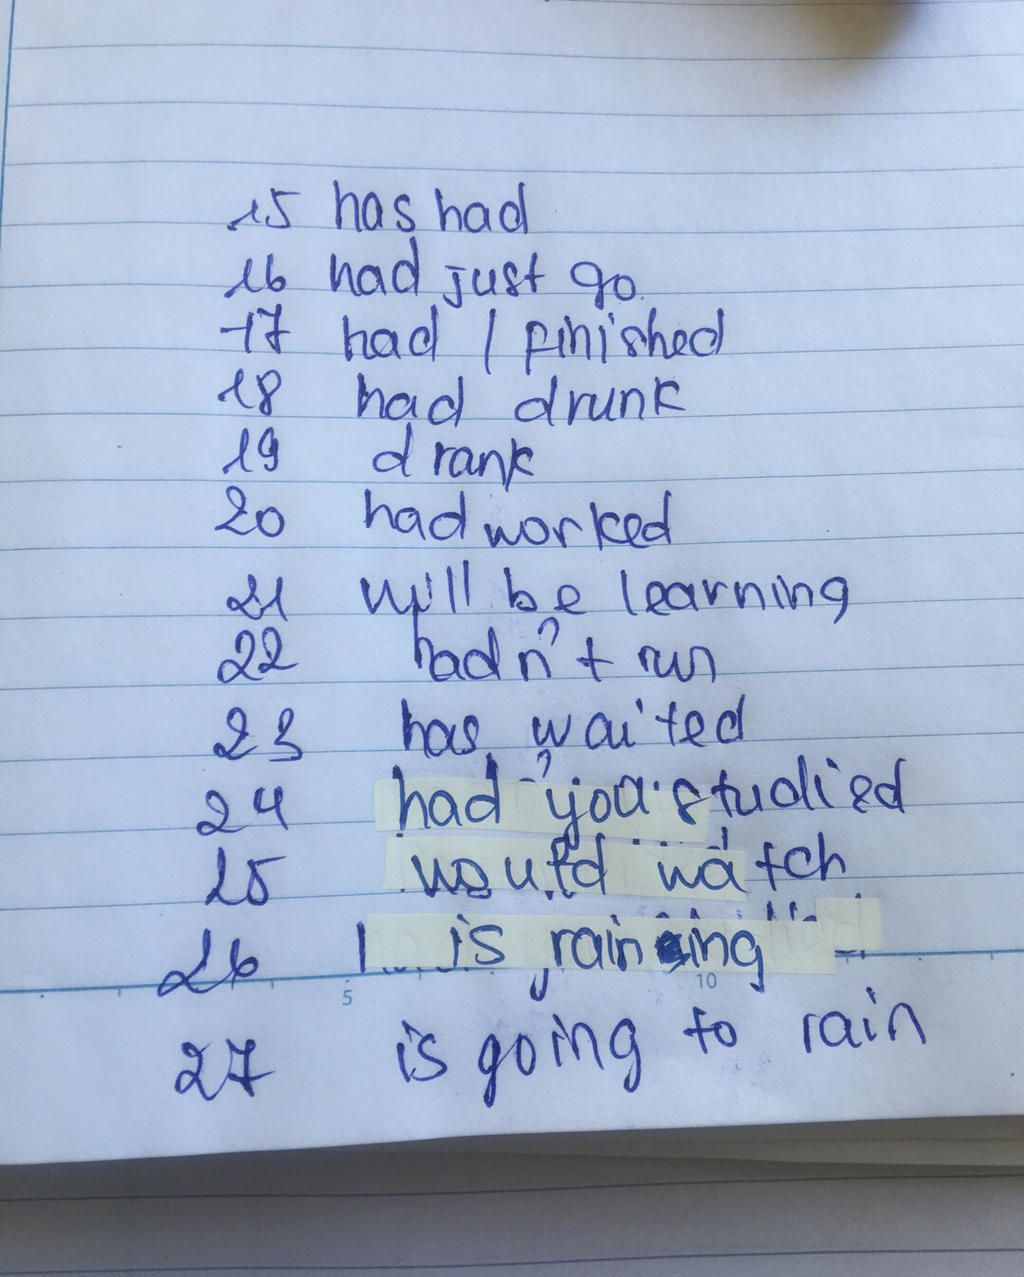 15 has had
16 had just go
17 had / finished
18 had drunk
19 drank
20 had worked
21 will be learning
22 hadn't run
23 has waited
24 had you studied
25 would watch
26 is raining
5 10
27 is going to rain